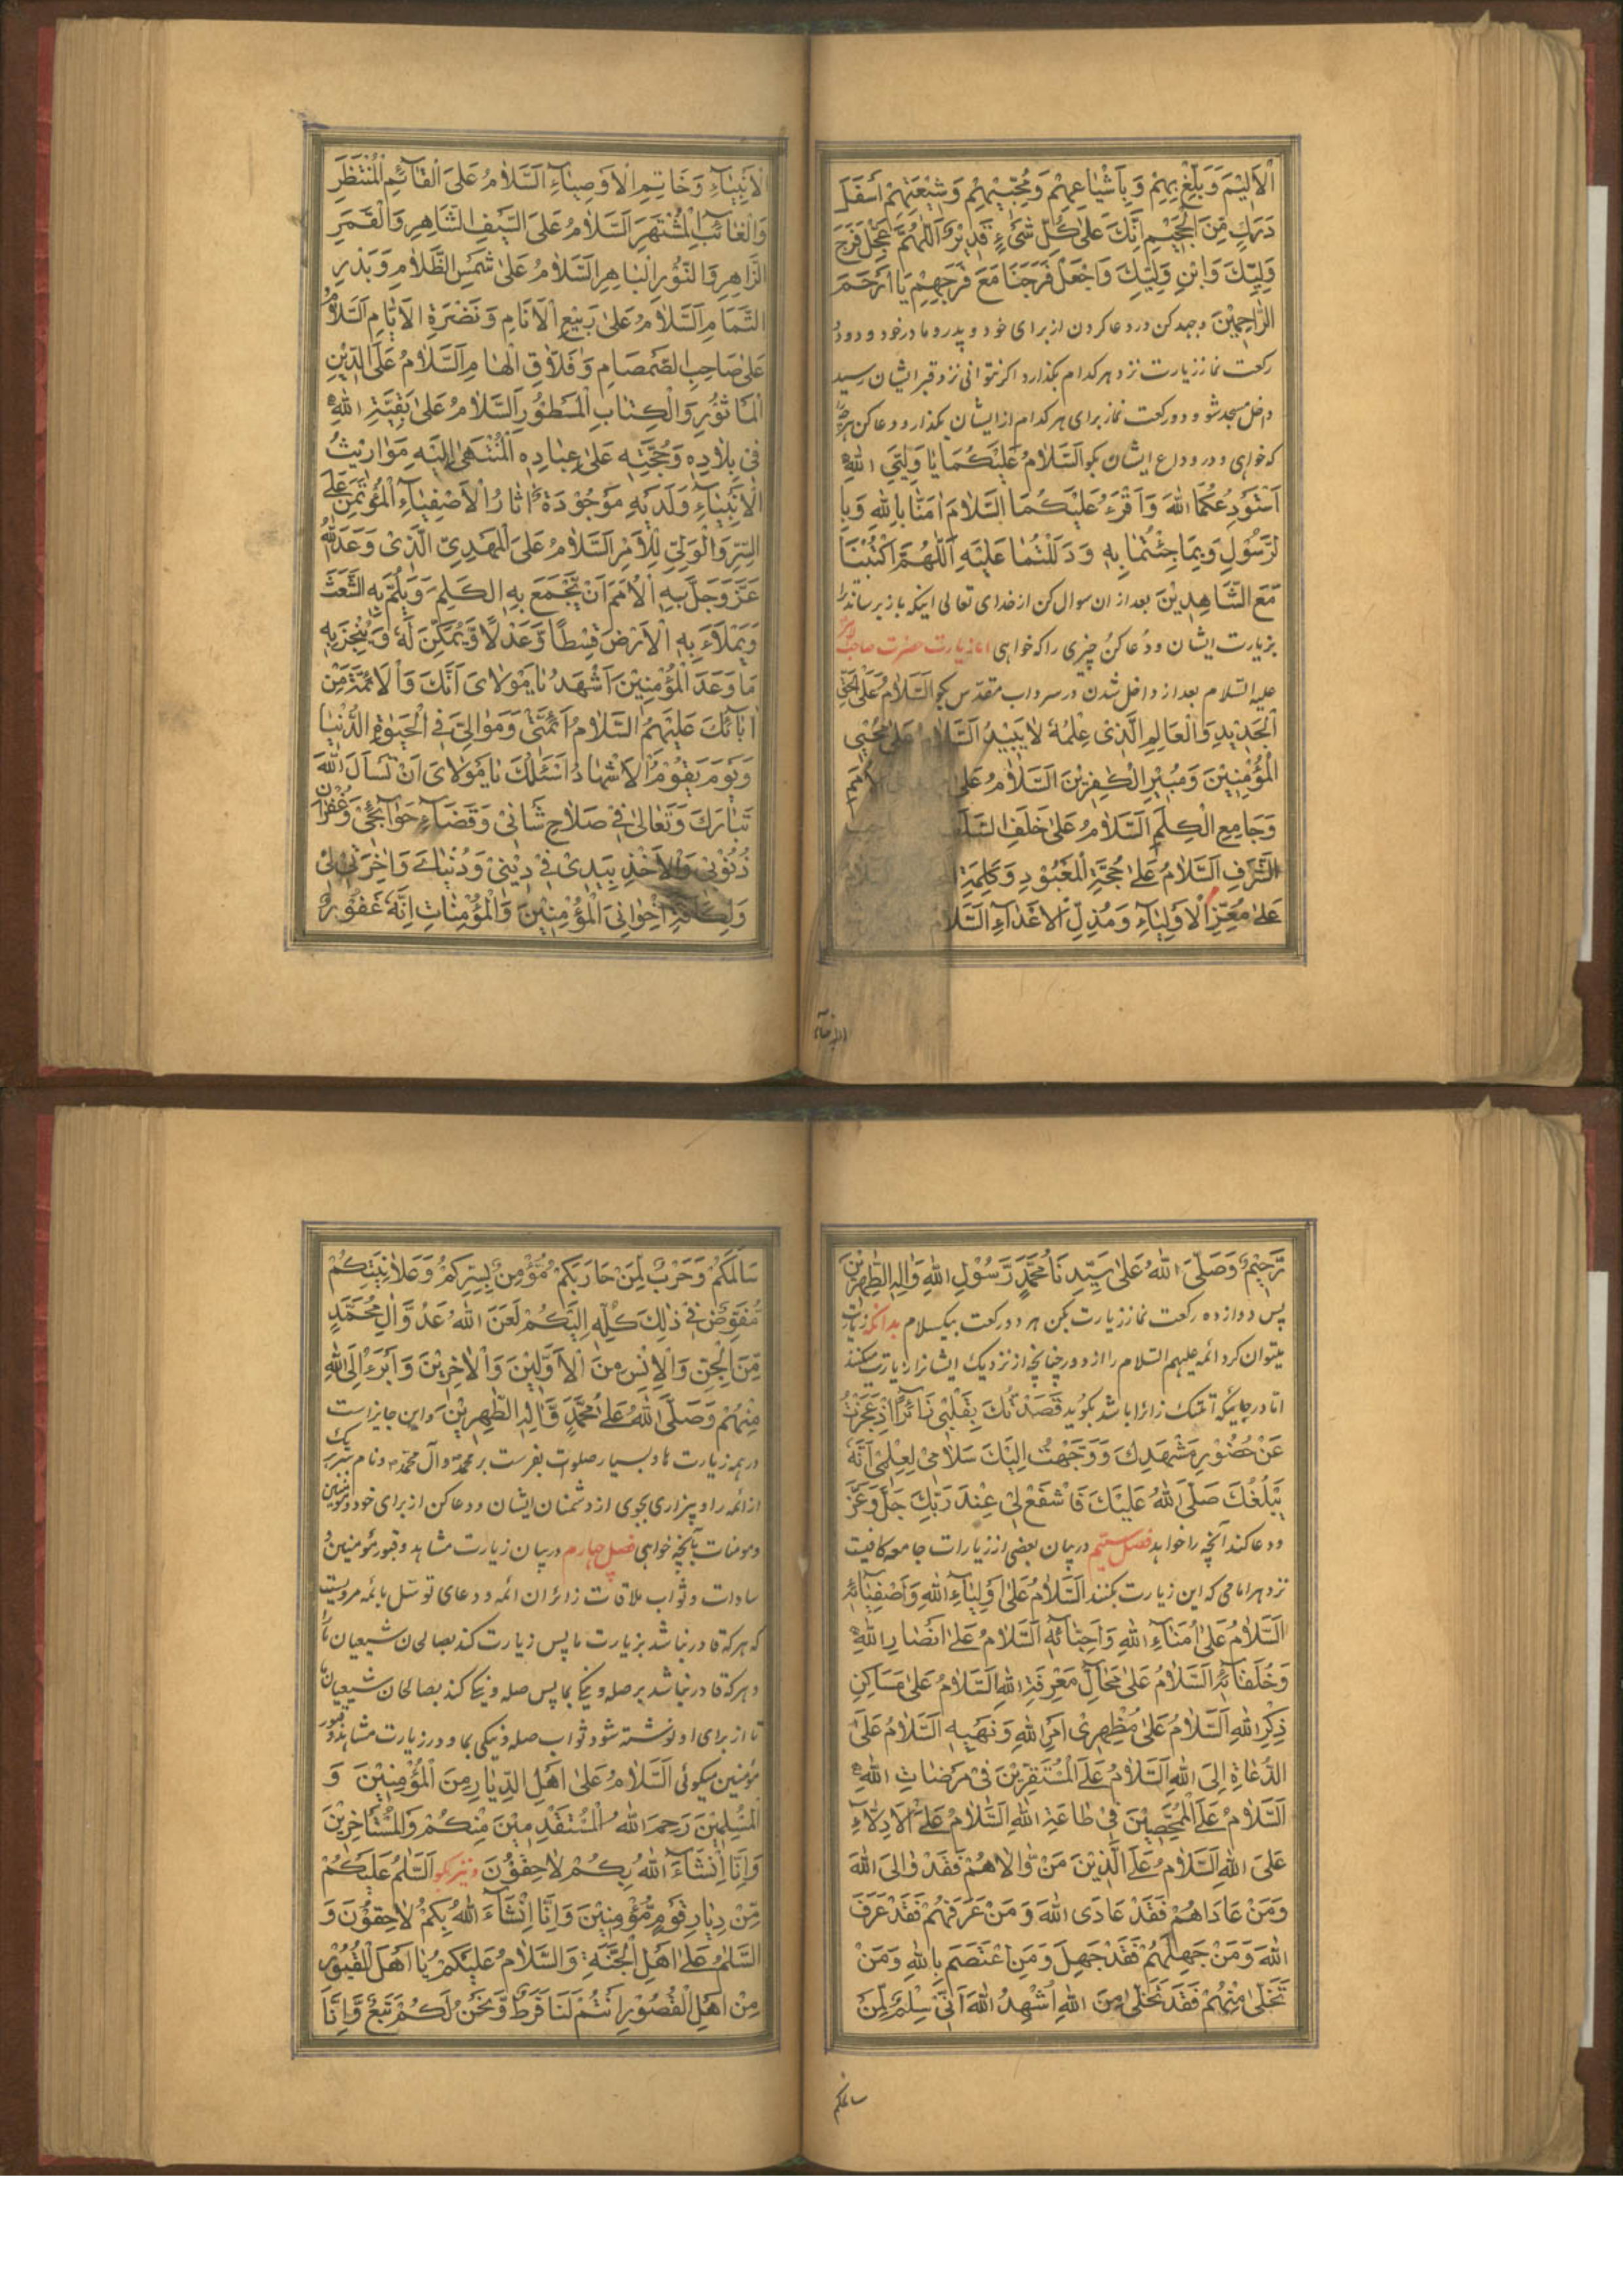 الْاَلِيْمَ وَبَلِّغْ بِهِمْ وَبِاَشْيَاعِهِمْ وَمُحِبِّيْهِمْ وَشِيْعَتِهِمْ اَسْفَلَ
دَرَكٍ مِّنَ الْجَحِيْمِ اِنَّكَ عَلٰى كُلِّ شَىْءٍ قَدِيْرٌ اَللّٰهُمَّ عَجِّلْ فَرَجَ
وَلِيِّكَ وَابْنِ وَلِيِّكَ وَاجْعَلْ فَرَجَنَا مَعَ فَرَجِهِمْ يَا اَرْحَمَ
الرَّاحِمِيْنَ وجهد كن در دعا كردن از براى خود و پدر و مادر خود و دو دو
ركعت نماز زيارت نزد هر كدام بگذارد اگر نتوانى نزد قبر ايشان رسيد
داخل مسجد شو و دو ركعت نماز براى هر كدام از ايشان بگذار و دعا كن
كه خواهى و در وداع ايشان بگو اَلسَّلَامُ عَلَيْكُمَا يَا وَلِيَّىِ اللهِ
اَسْتَوْدِعُكُمَا اللهَ وَاَقْرَءُ عَلَيْكُمَا السَّلَامَ اٰمَنَّا بِاللهِ وَبِا
لرَّسُوْلِ وَبِمَا جِئْتُمَا بِهٖ وَدَلَلْتُمَا عَلَيْهِ اَللّٰهُمَّ اكْتُبْنَا
مَعَ الشَّاهِدِيْنَ بعد از ان سوال كن از خداى تعالى اينكه باز برساند ترا
بزيارت ايشان و دُعا كن چيزى را كه خواهى اما زيارت حضرت صاحب
عليه السلام بعد از داخل شدن در سرداب مقدّس بگو اَلسَّلَامُ عَلَى الْحَقِّ
الْجَدِيْدِ وَالْعَالِمِ الَّذِىْ عِلْمُهٗ لَا يَبِيْدُ اَلسَّلَامُ عَلٰى مُحْيِى
الْمُؤْمِنِيْنَ وَمُبِيْرِ الْكٰفِرِيْنَ اَلسَّلَامُ عَلٰى الْاُمَمِ
وَجَامِعِ الْكَلِمِ اَلسَّلَامُ عَلٰى خَلَفِ السَّلَفِ
الشَّرَفِ اَلسَّلَامُ عَلٰى حُجَّةِ الْمَعْبُوْدِ وَكَلِمَةِ السلام
عَلٰى مُعِزِّ الْاَوْلِيَآءِ وَمُذِلِّ الْاَعْدَآءِ السَّلَامُ
لْاَنْبِيَآءِ وَخَاتِمِ الْاَوْصِيَآءِ اَلسَّلَامُ عَلَى الْقَآئِمِ الْمُنْتَظَرِ
وَالْغَآئِبِ الْمُشْتَهَرِ اَلسَّلَامُ عَلَى السَّيْفِ الشَّاهِرِ وَالْقَمَرِ
الزَّاهِرِ وَالنُّوْرِ الْبَاهِرِ اَلسَّلَامُ عَلٰى شَمْسِ الظَّلَامِ وَبَدْرِ
التَّمَامِ اَلسَّلَامُ عَلٰى رَبِيْعِ الْاَنَامِ وَنَضْرَةِ الْاَيَّامِ اَلسَّلَامُ
عَلٰى صَاحِبِ الصَّمْصَامِ وَفَلَّاقِ الْهَامِ اَلسَّلَامُ عَلَى الدِّيْنِ
الْمَاثُوْرِ وَالْكِتَابِ الْمَسْطُوْرِ اَلسَّلَامُ عَلٰى بَقِيَّةِ اللهِ
فِىْ بِلَادِهٖ وَحُجَّتِهٖ عَلٰى عِبَادِهِ الْمُنْتَهٰى اِلَيْهِ مَوَارِيْثُ
الْاَنْبِيَآءِ وَلَدَيْهِ مَوْجُوْدَةٌ اٰثَارُ الْاَصْفِيَآءِ الْمُؤْتَمَنِ عَلَى
السِّرِّ وَالْوَلِىِّ لِلْاَمْرِ اَلسَّلَامُ عَلَى الْمَهْدِىِّ الَّذِىْ وَعَدَ اللهُ
عَزَّوَجَلَّ بِهِ الْاُمَمَ اَنْ يَّجْمَعَ بِهِ الْكَلِمَ وَيَلُمَّ بِهِ الشَّعَثَ
وَيَمْلَاَ بِهِ الْاَرْضَ قِسْطًا وَّعَدْلًا وَّيُمَكِّنَ لَهٗ وَيُنْجِزَ بِهٖ
مَا وَعَدَ الْمُؤْمِنِيْنَ اَشْهَدُ يَا مَوْلَاىَ اَنَّكَ وَالْاَئِمَّةَ مِنْ
اٰبَآئِكَ عَلَيْهِمُ السَّلَامُ اَئِمَّتِىْ وَمَوَالِىَّ فِى الْحَيٰوةِ الدُّنْيَا
وَيَوْمَ يَقُوْمُ الْاَشْهَادُ اَسْئَلُكَ يَا مَوْلَاىَ اَنْ تَسْاَلَ اللهَ
تَبَارَكَ وَتَعَالٰى فِىْ صَلَاحِ شَانِىْ وَقَضَآءِ حَوَآئِجِىْ وَغُفْرَانِ
ذُنُوْبِىْ وَالْاَخْذِ بِيَدِىْ فِىْ دِيْنِىْ وَدُنْيَاىَ وَاٰخِرَتِىْ لِىْ
وَلِكَآفَّةِ اِخْوَانِىَ الْمُؤْمِنِيْنَ وَالْمُؤْمِنَاتِ اِنَّهٗ غَفُوْرٌ
رَّحِيْمٌ وَصَلَّى اللهُ عَلٰى سَيِّدِنَا مُحَمَّدٍ رَّسُوْلِ اللهِ وَاٰلِهِ الطَّاهِرِيْنَ
پس دوازده ركعت نماز زيارت بكن هر دو ركعت بيكسلام بدانكه زيارت
ميتوان كرد ائمه عليهم السلام را از دور چنانچه از نزديك ايشانرا زيارت ميكنند
اما در جائيكه زائرا باشد بگويد قَصَدْتُكَ بِقَلْبِىْ زَآئِرًا اِذْ عَجَزْتُ
عَنْ حُضُوْرِ مَشْهَدِكَ وَوَجَّهْتُ اِلَيْكَ سَلَامِىْ لِعِلْمِىْ اَنَّهٗ
يَبْلُغُكَ صَلَّى اللهُ عَلَيْكَ فَاشْفَعْ لِىْ عِنْدَ رَبِّكَ جَلَّ وَعَزَّ
و دعا كند آنچه را خواهد فصل سيّم در بيان بعضى از زيارات جامعه كافيست
نزد هر امامى كه اين زيارت بكنند اَلسَّلَامُ عَلٰى اَوْلِيَآءِ اللهِ وَاَصْفِيَآئِهٖ
اَلسَّلَامُ عَلٰى اُمَنَآءِ اللهِ وَاَحِبَّآئِهٖ اَلسَّلَامُ عَلٰى اَنْصَارِ اللهِ
وَخُلَفَآئِهٖ اَلسَّلَامُ عَلٰى مَحَآلِّ مَعْرِفَةِ اللهِ اَلسَّلَامُ عَلٰى مَسَاكِنِ
ذِكْرِ اللهِ اَلسَّلَامُ عَلٰى مُظْهِرِىْ اَمْرِ اللهِ وَنَهْيِهٖ اَلسَّلَامُ عَلَى
الدُّعَاةِ اِلَى اللهِ اَلسَّلَامُ عَلَى الْمُسْتَقِرِّيْنَ فِىْ مَرْضَاتِ اللهِ
اَلسَّلَامُ عَلَى الْمُمَحَّصِيْنَ فِىْ طَاعَةِ اللهِ اَلسَّلَامُ عَلَى الْاَدِلَّآءِ
عَلَى اللهِ اَلسَّلَامُ عَلَى الَّذِيْنَ مَنْ وَّالَاهُمْ فَقَدْ وَالَى اللهَ
وَمَنْ عَادَاهُمْ فَقَدْ عَادَى اللهَ وَمَنْ عَرَفَهُمْ فَقَدْ عَرَفَ
اللهَ وَمَنْ جَهِلَهُمْ فَقَدْ جَهِلَ وَمَنِ اعْتَصَمَ بِاللهِ وَمَنْ
تَخَلّٰى مِنْهُمْ فَقَدْ تَخَلّٰى مِنَ اللهِ اُشْهِدُ اللهَ اَنِّىْ سِلْمٌ لِّمَنْ
سالمكم
سَالَمَكُمْ وَحَرْبٌ لِّمَنْ حَارَبَكُمْ مُّؤْمِنٌ بِسِرِّكُمْ وَعَلَانِيَتِكُمْ
مُفَوِّضٌ فِىْ ذٰلِكَ كُلِّهٖ اِلَيْكُمْ لَعَنَ اللهُ عَدُوَّ اٰلِ مُحَمَّدٍ
مِّنَ الْجِنِّ وَالْاِنْسِ مِنَ الْاَوَّلِيْنَ وَالْاٰخِرِيْنَ وَاَبْرَءُ اِلَى اللهِ
مِنْهُمْ وَصَلَّى اللهُ عَلٰى مُحَمَّدٍ وَّاٰلِهِ الطَّاهِرِيْنَ و اين جايز است
در همه زيارت ها و بسيار صلوات بفرست بر محمد و آل محمد و نام ببر يك
از ائمه را و بيزارى بجوى از دشمنان ايشان و دعا كن از براى خود و مومنين
و مومنات بآنچه خواهى فصل چهارم در بيان زيارت مشاهد و قبور مؤمنين و
سادات و ثواب ملاقات زائران ائمه و دعاى توسّل بائمه مرويست
كه هر كه قادر نباشد بزيارت ما پس زيارت كند بصالحان شيعيان ما
و هر كه قادر نباشد بر صله و نيكى بما پس صله و نيكى كند بصالحان شيعيان ما
تا از براى او نوشته شود ثواب صله و نيكى بما و در زيارت مشاهد و قبور
مؤمنين ميگوئى اَلسَّلَامُ عَلٰى اَهْلِ الدِّيَارِ مِنَ الْمُؤْمِنِيْنَ وَ
الْمُسْلِمِيْنَ رَحِمَ اللهُ الْمُسْتَقْدِمِيْنَ مِنْكُمْ وَالْمُسْتَاخِرِيْنَ
وَاِنَّا اِنْشَآءَ اللهُ بِكُمْ لَاحِقُوْنَ و نيز بگو اَلسَّلَامُ عَلَيْكُمْ
مِّنْ دِيَارِ قَوْمٍ مُّؤْمِنِيْنَ وَاِنَّا اِنْشَآءَ اللهُ بِكُمْ لَاحِقُوْنَ وَ
السَّلَامُ عَلٰى اَهْلِ الْجَنَّةِ وَالسَّلَامُ عَلَيْكُمْ يَا اَهْلَ الْقُبُوْرِ
مِنْ اَهْلِ الْقُصُوْرِ اَنْتُمْ لَنَا فَرَطٌ وَّنَحْنُ لَكُمْ تَبَعٌ وَّاِنَّا